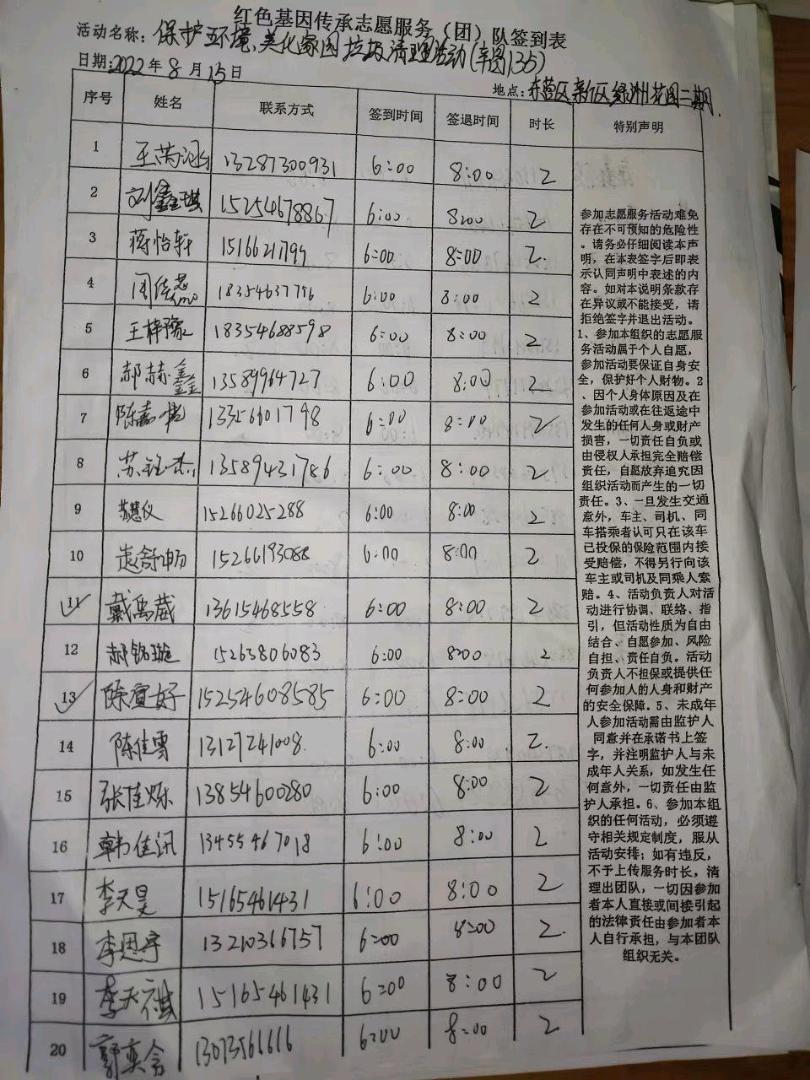 红色基因传承志愿服务（团）队签到表
活动名称：保护环境、美化家园 垃圾清理活动
日期：2022年8月15日
地点：东营区新区绿洲花园二期
序号 姓名 联系方式 签到时间 签退时间 时长 特别声明
1 13287300931 6:00 8:00 2
2 刘鑫琪 15254678867 6:00 8:00 2
3 蒋怡轩 15166211799 6:00 8:00 2
4 18354637796 6:00 8:00 2
5 王梓豫 18354688598 6:00 8:00 2
6 郝赫鑫 13589964727 6:00 8:00 2
7 陈嘉 13356601798 6:00 8:00 2
8 苏钰杰 13589431786 6:00 8:00 2
9 苏慧仪 15266025288 6:00 8:00 2
10 赵舒 15266193088 6:00 8:00 2
11 戴禹葳 13615468558 6:00 8:00 2
12 郝铭璇 15263806083 6:00 8:00 2
13 15254608585 6:00 8:00 2
14 陈佳雪 13127241008 6:00 8:00 2
15 张佳烁 13854600280 6:00 8:00 2
16 韩佳讯 13455467018 6:00 8:00 2
17 李天昊 15165461431 6:00 8:00 2
18 李思宇 13210366757 6:00 8:00 2
19 李天祺 15165461431 6:00 8:00 2
20 郭奕含 13073561616 6:00 8:00 2
参加志愿服务活动难免
存在不可预知的危险性
。请务必仔细阅读本声
明，在本表签字后即表
示认同声明中表述的内
容。如对本说明条款存
在异议或不能接受，请
拒绝签字并退出活动。
1、参加本组织的志愿服
务活动属于个人自愿，
参加活动要保证自身安
全，保护好个人财物。2
、因个人身体原因及在
参加活动或在往返途中
发生的任何人身或财产
损害，一切责任自负或
由侵权人承担完全赔偿
责任，自愿放弃追究因
组织活动而产生的一切
责任。3、一旦发生交通
意外，车主、司机、同
车搭乘者认可只在该车
已投保的保险范围内接
受赔偿，不得另行向该
车主或司机及同乘人索
赔。4、活动负责人对活
动进行协调、联络、指
引，但活动性质为自由
结合、自愿参加、风险
自担、责任自负。活动
负责人不担保或提供任
何参加人的人身和财产
的安全保障。5、未成年
人参加活动需由监护人
同意并在承诺书上签
字，并注明监护人与未
成年人关系，如发生任
何意外，一切责任由监
护人承担。6、参加本组
织的任何活动，必须遵
守相关规定制度，服从
活动安排；如有违反，
不予上传服务时长，清
理出团队，一切因参加
者本人直接或间接引起
的法律责任由参加者本
人自行承担，与本团队
组织无关。